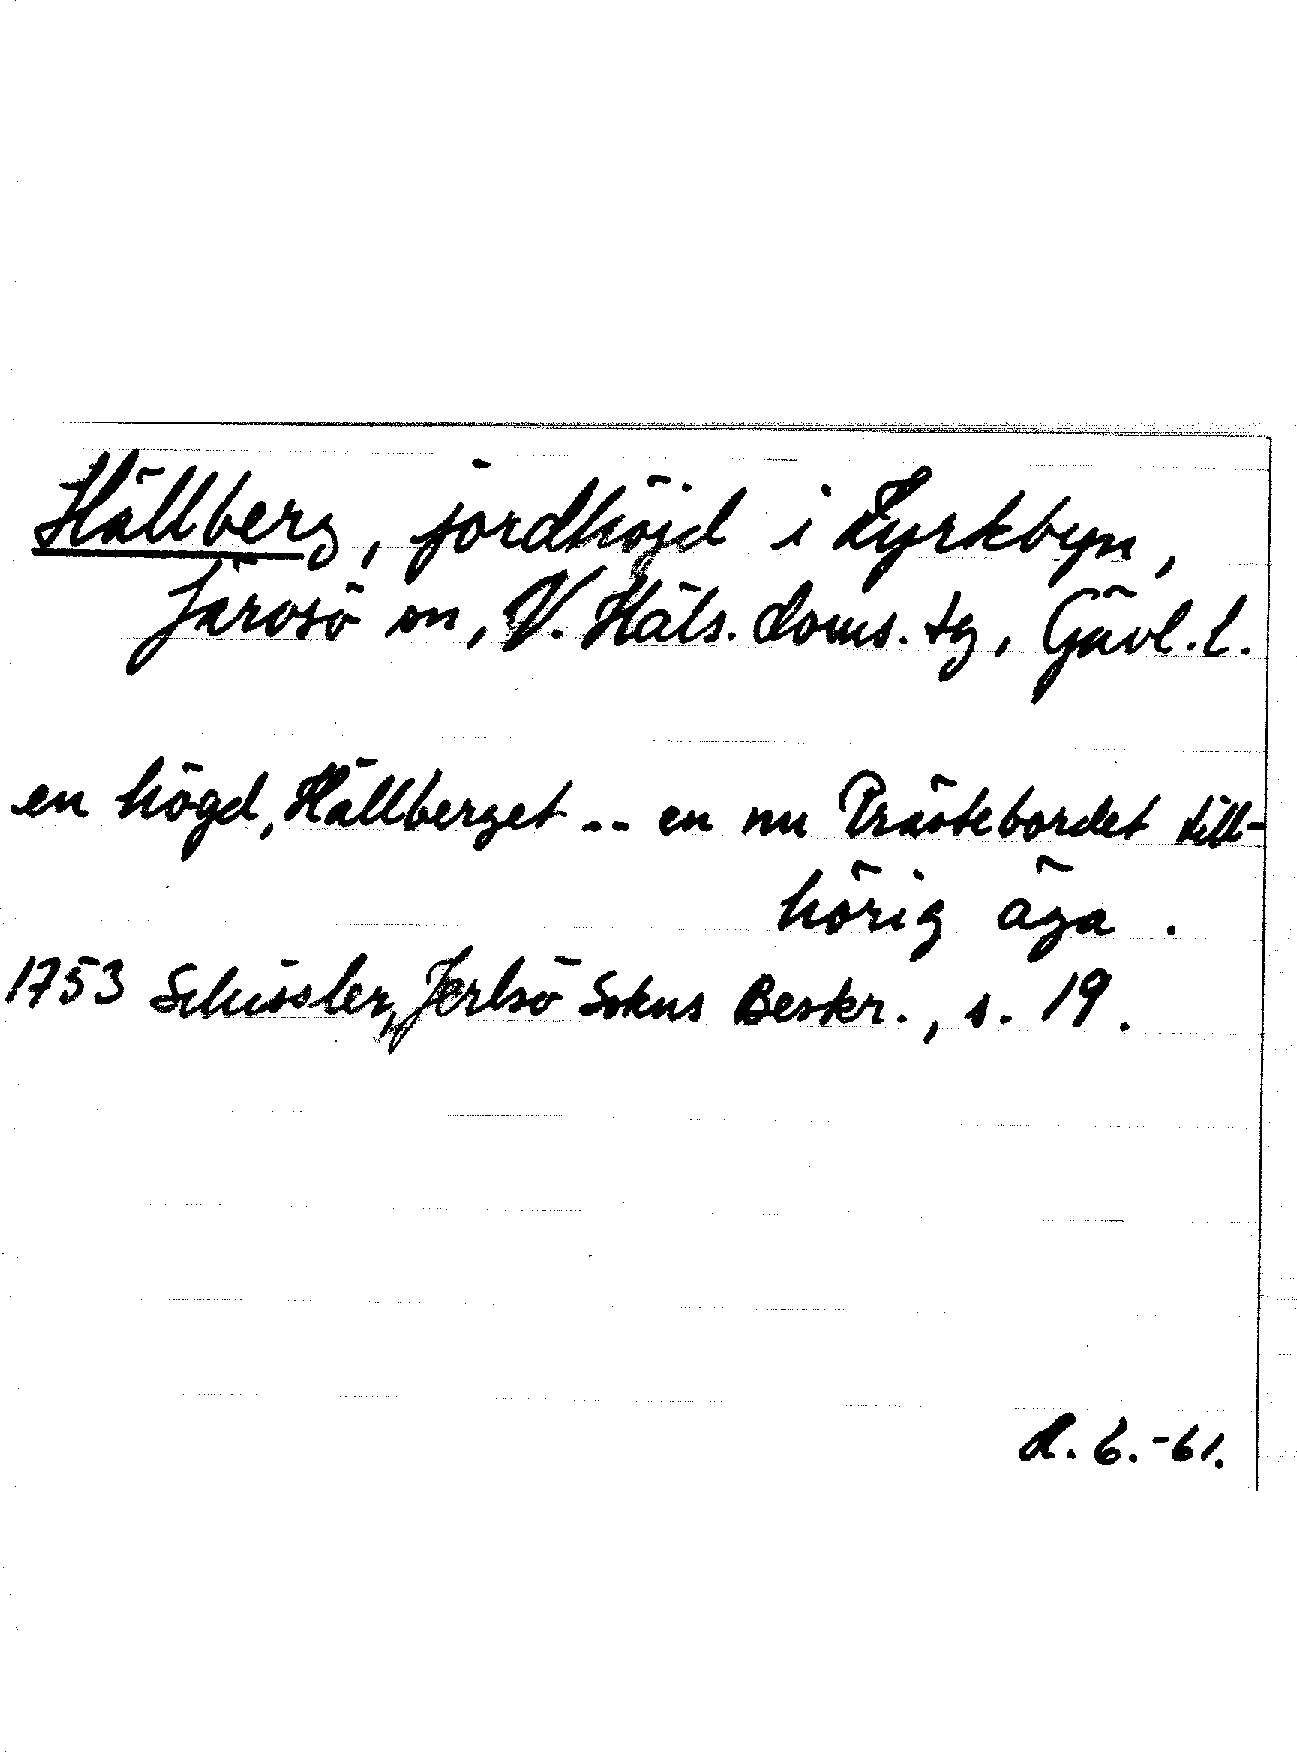 Hällberg, jordhöjd i Kyrkbyn,
Järvsö sn, V. Häls. doms. tg, Gävl. l.
en högd, Hällberget -- en nu Prästebordet till-
hörig äga.
1753 Schissler, Jerlsö Sokns Beskr., s. 19.
d. 6.-61.